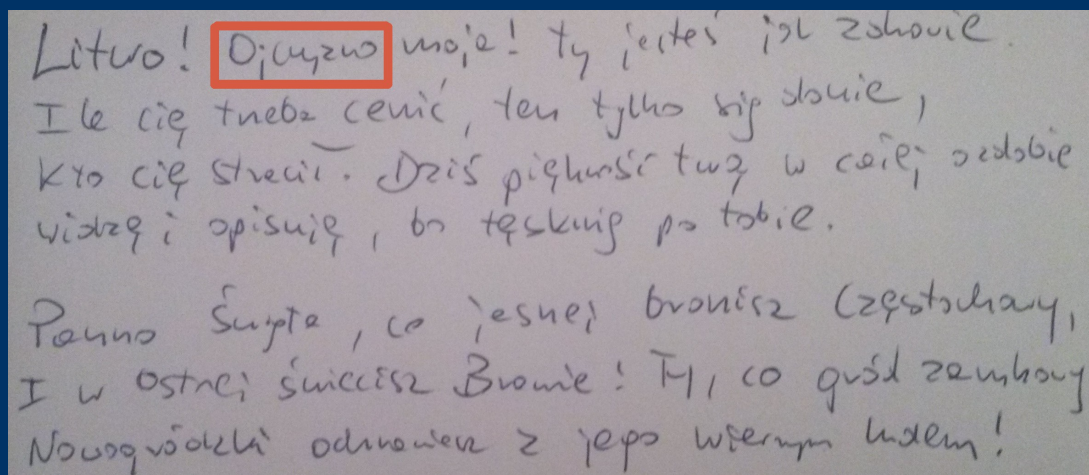 Litwo! Ojczyzno moja! ty jesteś jak zdrowie.
Ile cię trzeba cenić, ten tylko się dowie,
Kto cię stracił. Dziś piękność twą w całej ozdobie
widzę i opisuję, bo tęsknię po tobie.
Panno Święta, co jasnej bronisz Częstochowy,
I w Ostrej świecisz Bramie! Ty, co gród zamkowy
Nowogródzki ochraniasz z jego wiernym ludem!